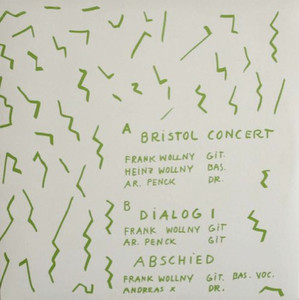 A BRISTOL CONCERT
FRANK WOLLNY GIT.
HEINZ WOLLNY BAS.
AR. PENCK DR.
B DIALOG I
FRANK WOLLNY GIT
AR. PENCK GIT
ABSCHIED
FRANK WOLLNY GIT. BAS. VOC.
ANDREAS X DR.